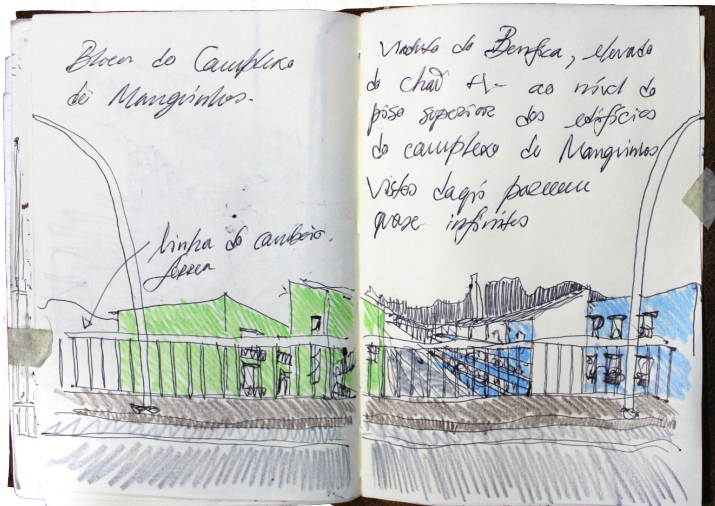 Blocos do Complexo
de Manguinhos.
linha do caminho
férrea
Viaduto de Benfica, elevado
do chão +/- ao nível do
piso superior dos edifícios
do complexo de Manguinhos
Vistos daqui parecem
quase infinitos